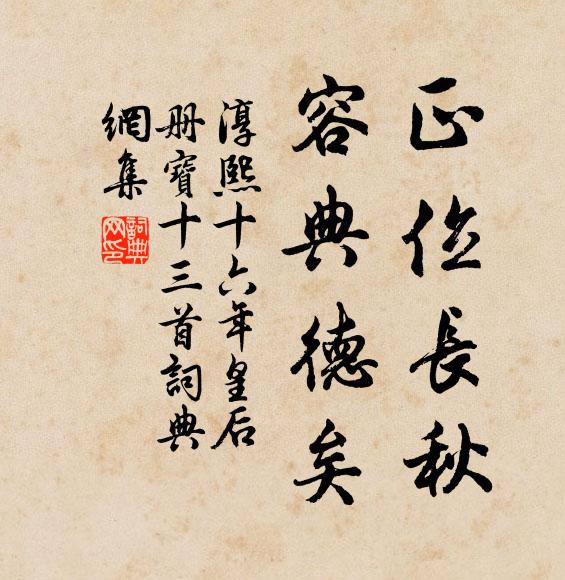 正位長秋
容典德矣
淳熙十六年皇后
册寶十三首詞典
網集
詞典
网印